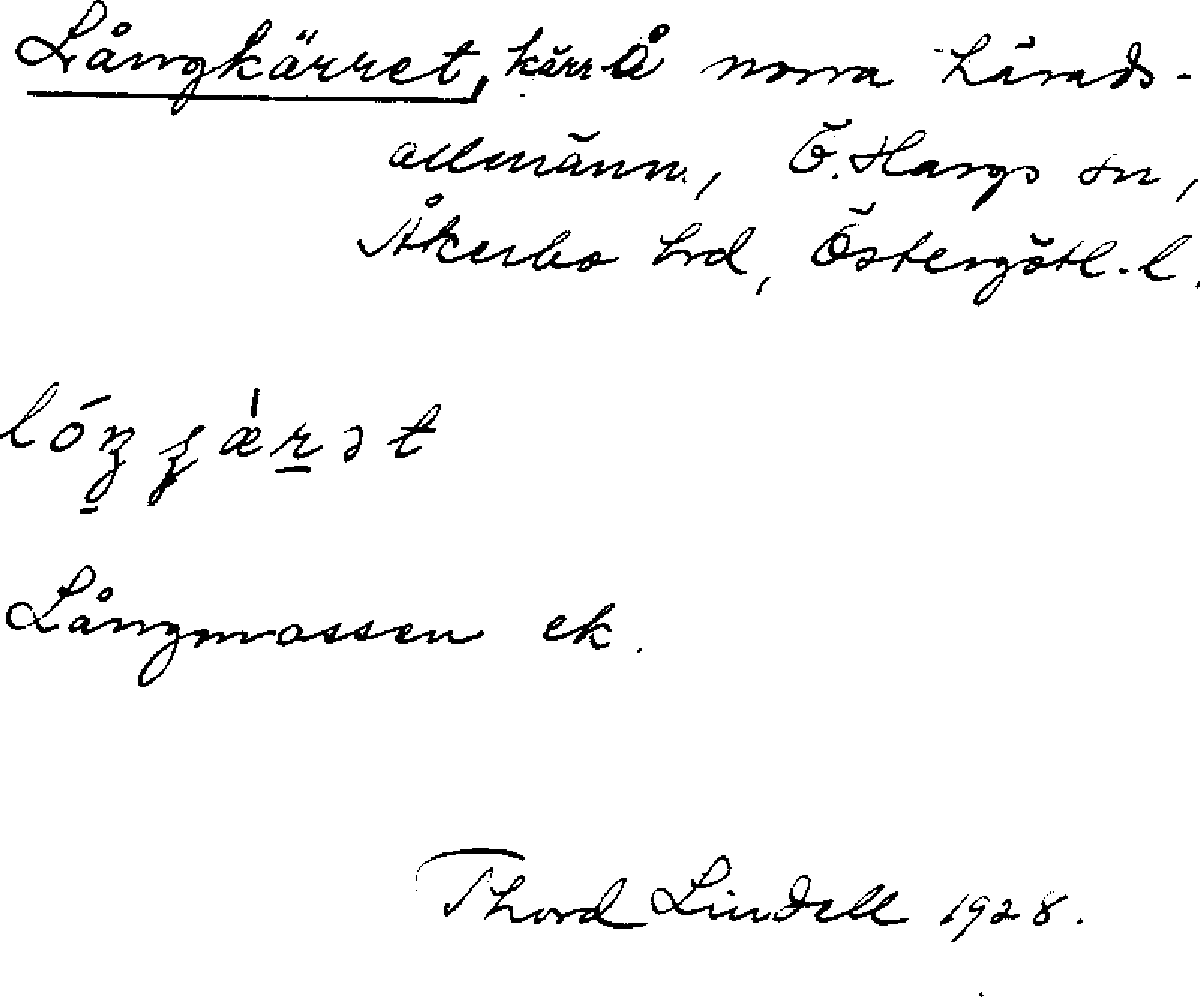 Långkärret, kärr å norra härads-
allmänn., Ö. Hargs sn,
Åkerbo hrd, Östergötl. l.
Långmossen ek.
Thord Lindell 1928.